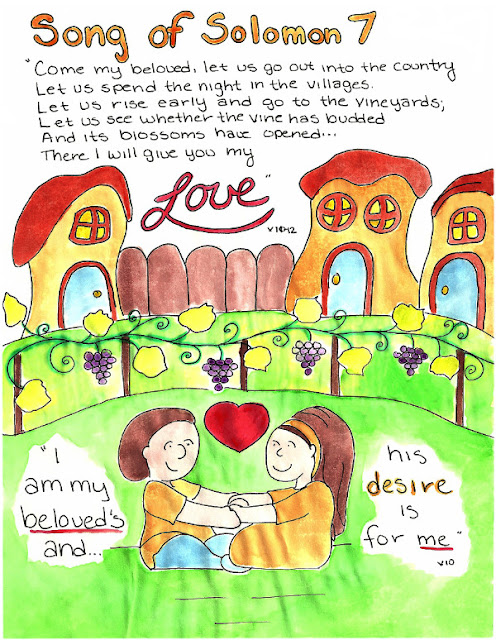 Song of Solomon 7
"Come my beloved, let us go out into the country
Let us spend the night in the villages.
Let us rise early and go to the vineyards;
Let us see whether the vine has budded
And its blossoms have opened...
There I will give you my
Love"
"I
am my
beloved's
and...
his
desire
is
for me."
v10